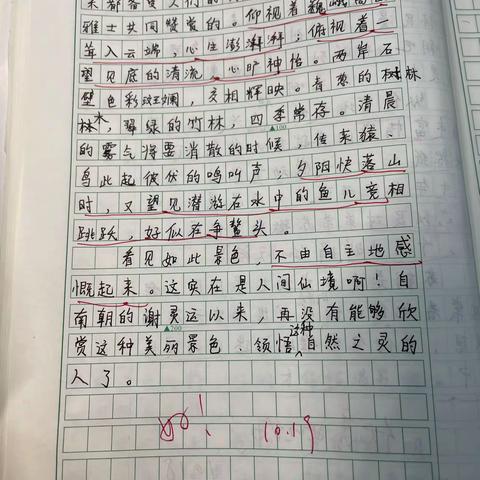 来都备受人们的
雅士共同赞赏的。仰视着巍峨高
耸入云端,心生澎湃;俯视着一
望见底的清流,心旷神怡。两岸石
壁色彩斑斓,交相辉映。青葱的树林
林木,翠绿的竹林,四季常存。清晨
▲100
的雾气将要消散的时候,传来猿、
鸟此起彼伏的鸣叫声;夕阳快落山
时,又望见潜游在水中的鱼儿竞相
跳跃,好似在争鳌头。
看见如此景色,不由自主地感
慨起来。这实在是人间仙境啊!自
南朝的谢灵运以来,再没有能够欣
▲200
赏这种美丽景色、领悟这种自然之灵的
人了。
! 10.19